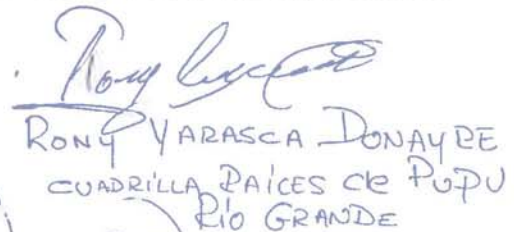 RONY YARASCA DONAYRE
CUADRILLA RAICES de PUPU
RÍO GRANDE